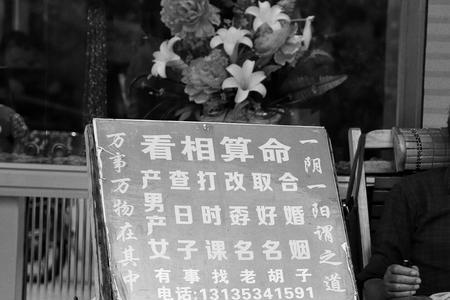 看相算命
产男产女
查日子
打时课
改孬名
取好名
合婚姻
有事找老胡子
电话:13135341591
一阴一阳谓之道
万事万物在其中